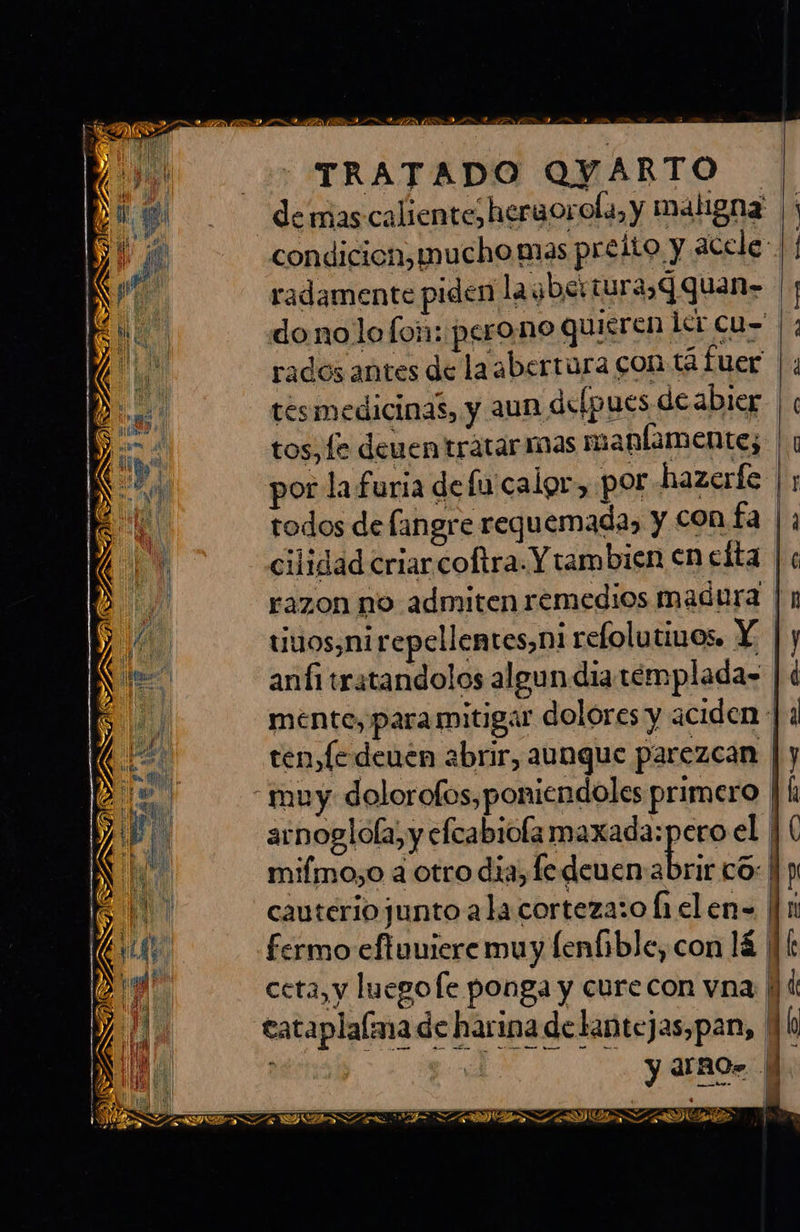 TRATADO QVARTO
de mas caliente, heruorosa, y maligna
condicion, mucho mas presto y accle
radamente piden la abertura, q̃ quan-
do no lo son: pero no quieren ser cu-
rados antes de la abertura con tã fuer
tes medicinas, y aun despues de abier
tos, se deuen tratar mas mansamente;
por la furia de su calor, por hazerse
todos de sangre requemada, y con fa
cilidad criar costra. Y tambien en esta
razon no admiten remedios madura
tiuos, ni repellentes, ni resolutiuos. Y
ansi tratandolos algun dia templada-
mente, para mitigar dolores y aciden
ten, se deuen abrir, aunque parezcan
muy dolorosos, poniendoles primero
arnoglosa, y escabiosa maxada: pero el
mismo, o a otro dia, se deuen abrir cõ
cauterio junto a la corteza: o si el en-
fermo estuuiere muy sensible, con lã
ceta, y luego se ponga y cure con vna
cataplasma de harina de lantejas, pan,
y arno-